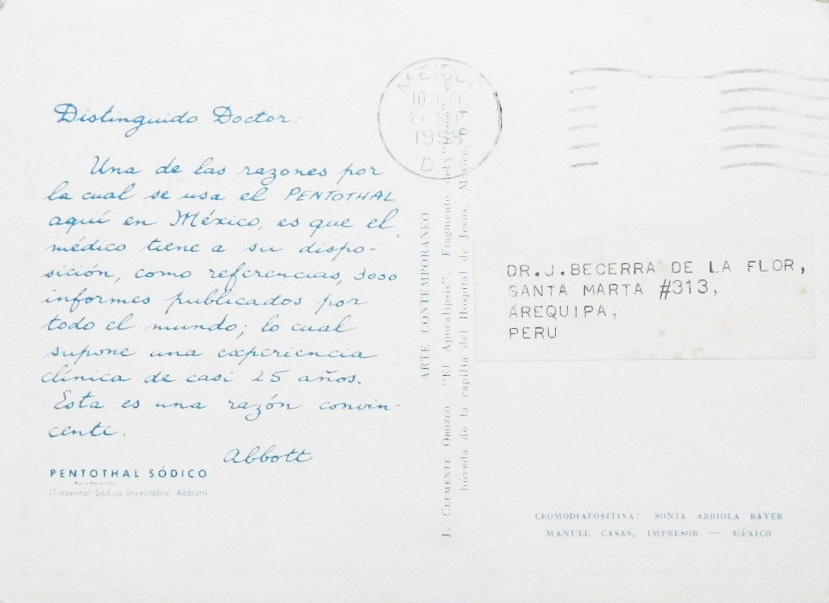 Distinguido Doctor:
Una de las razones por
la cual se usa el PENTOTHAL
aquí en México, es que el
médico tiene a su dispo-
sición, como referencias, 3000
informes publicados por
todo el mundo; lo cual
supone una experiencia
clínica de casi 25 años.
Esta es una razón convin-
cente.
Abbott
PENTOTHAL SÓDICO
(Tiopental Sódico Inyectable, Abbott)
ARTE CONTEMPORANEO
J. CLEMENTE OROZCO "El Apocalipsis". Fragmento de la
bóveda de la capilla del Hospital de Jesús. México, D. F.
MEXICO
1958
D.
DR.J.BECERRA DE LA FLOR,
SANTA MARTA #313,
AREQUIPA,
PERU
CROMODIAPOSITIVA: SONIA ARRIOLA BAYER
MANUEL CASAS, IMPRESOR — MÉXICO